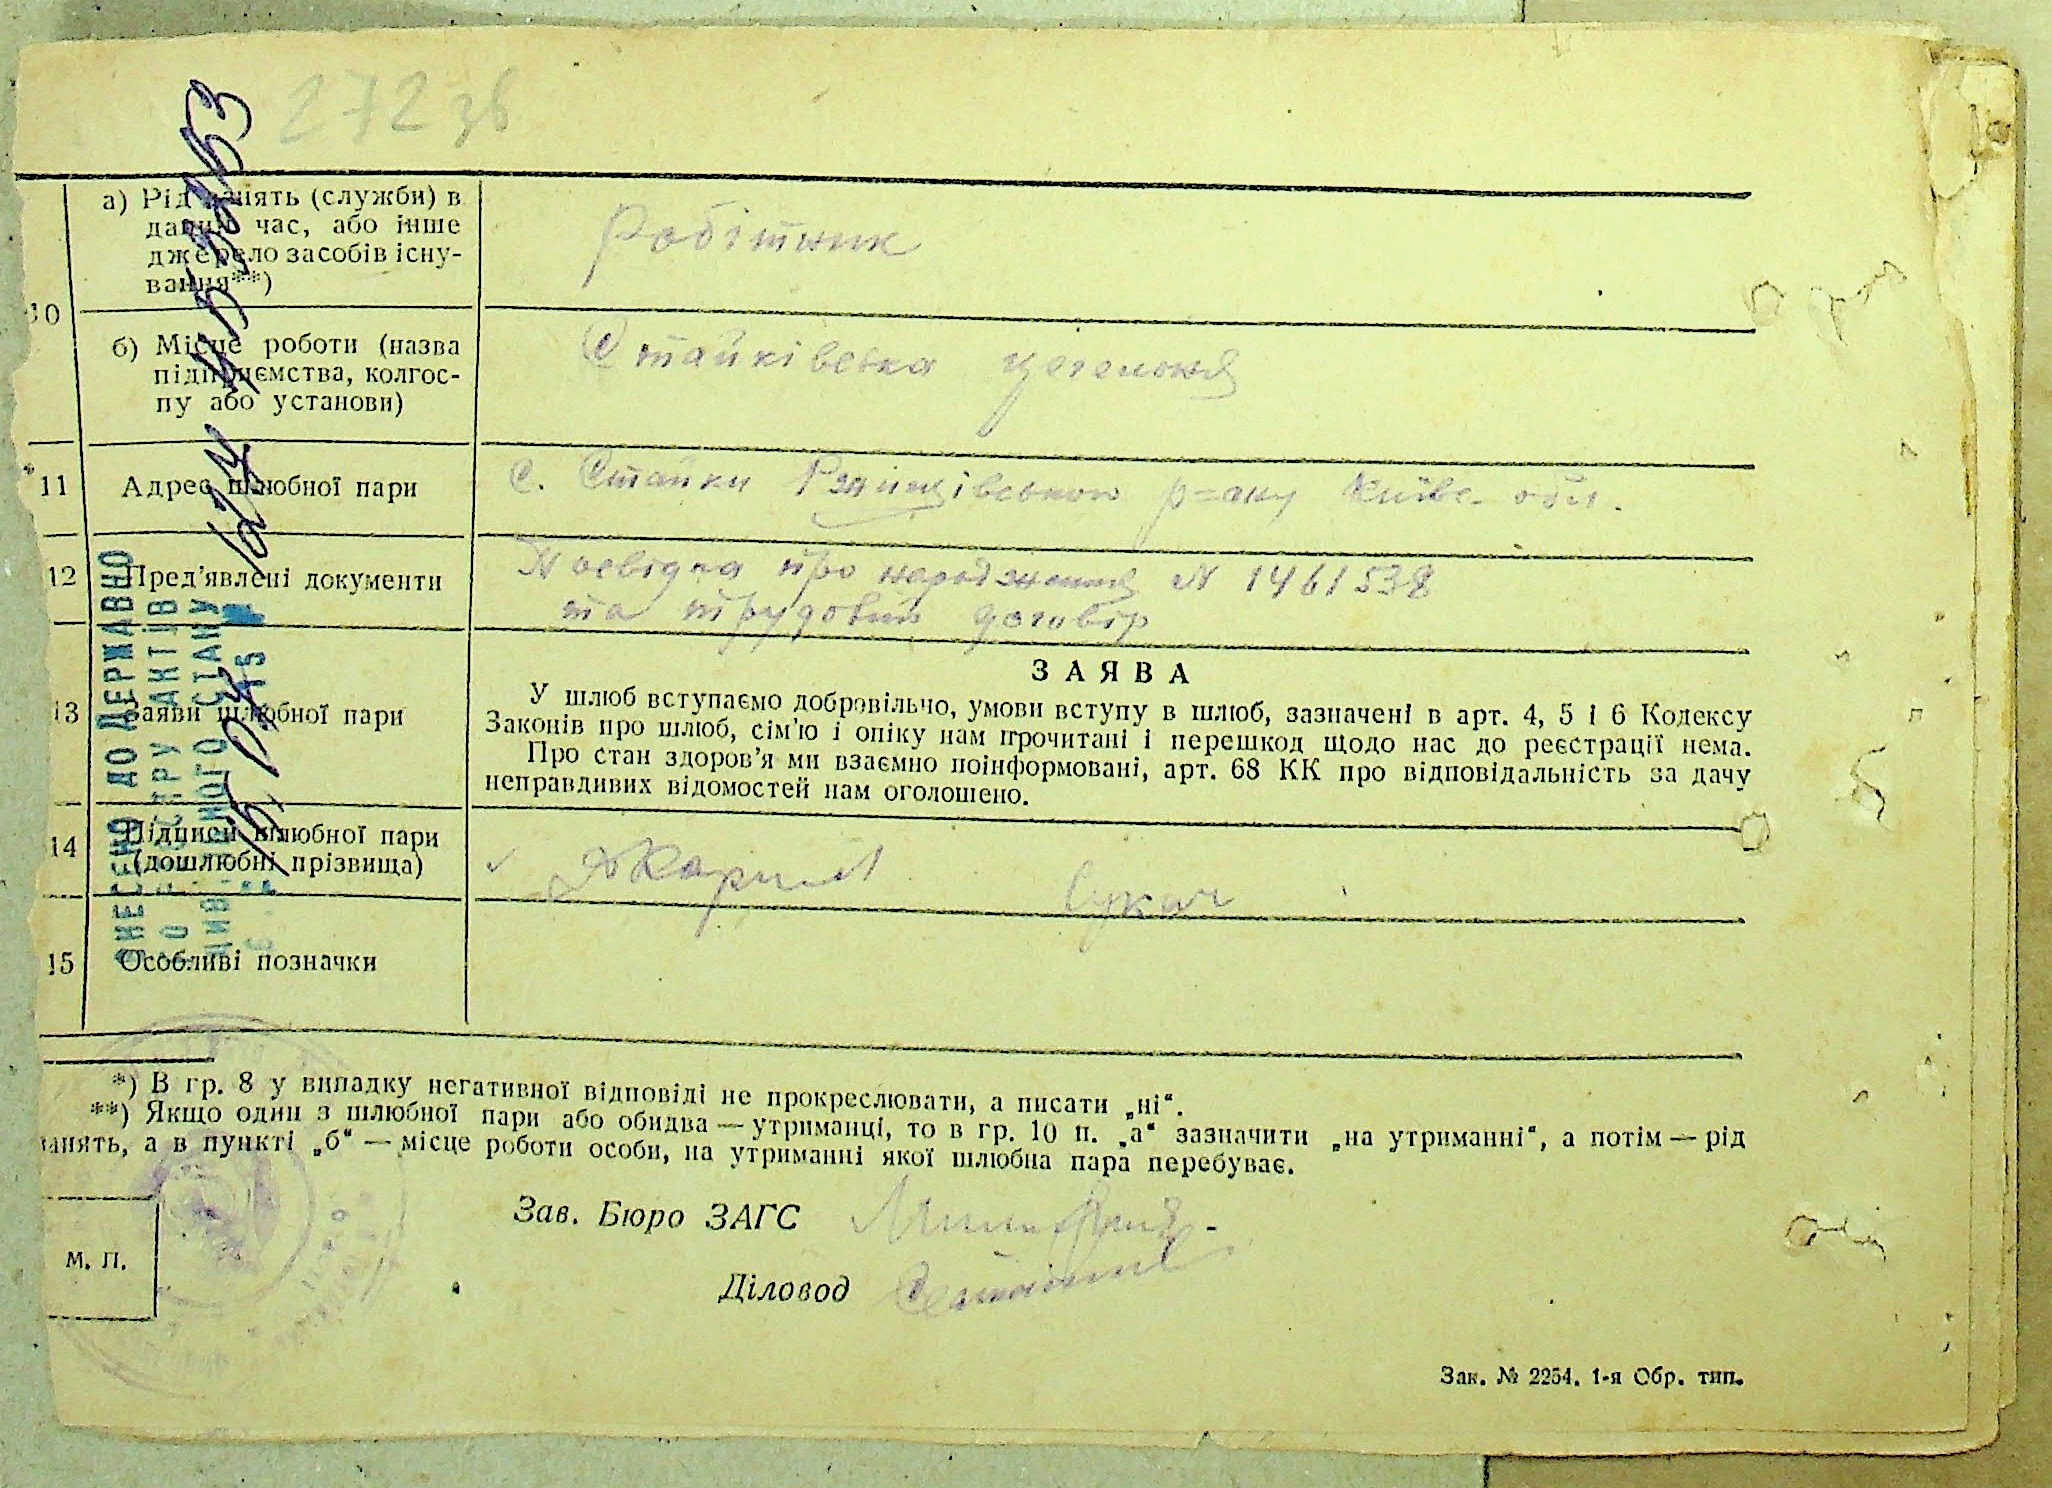 272 зв
10
а) Рід занять (служби) в
даний час, або інше
джерело засобів існу-
вання**)
Робітник
б) Місце роботи (назва
підприємства, колгос-
пу або установи)
Стайківська цегельня
*11
Адрес шлюбної пари
с. Стайки Ржищівського р=ану Київс. обл.
12
Пред'явлені документи
Посвідка про народження N 1461538
та трудовий договір
13
Заяви шлюбної пари
ЗАЯВА
У шлюб вступаємо добровільно, умови вступу в шлюб, зазначені в арт. 4, 5 і 6 Кодексу
Законів про шлюб, сім'ю і опіку нам прочитані і перешкод щодо нас до реєстрації нема.
Про стан здоров'я ми взаємно поінформовані, арт. 68 КК про відповідальність за дачу
неправдивих відомостей нам оголошено.
14
Підписи шлюбної пари
(дошлюбні прізвища)
Сукач
15
Особливі позначки
ВНЕСЕНО ДО ДЕРЖАВНО
АКТІВ
СТАНУ
*) В гр. 8 у випадку негативної відповіді не прокреслювати, а писати „ні“.
**) Якщо один з шлюбної пари або обидва — утриманці, то в гр. 10 п. „а“ зазначити „на утриманні“, а потім — рід
занять, а в пункті „б“ — місце роботи особи, на утриманні якої шлюбна пара перебуває.
Зав. Бюро ЗАГС
М. П.
Діловод
Зак. № 2254. 1-я Обр. тип.